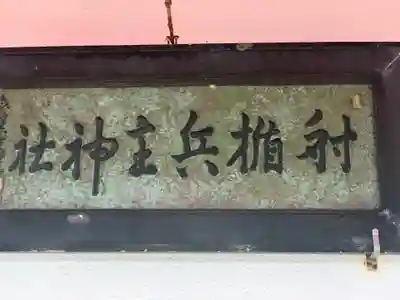 射楯兵主神社